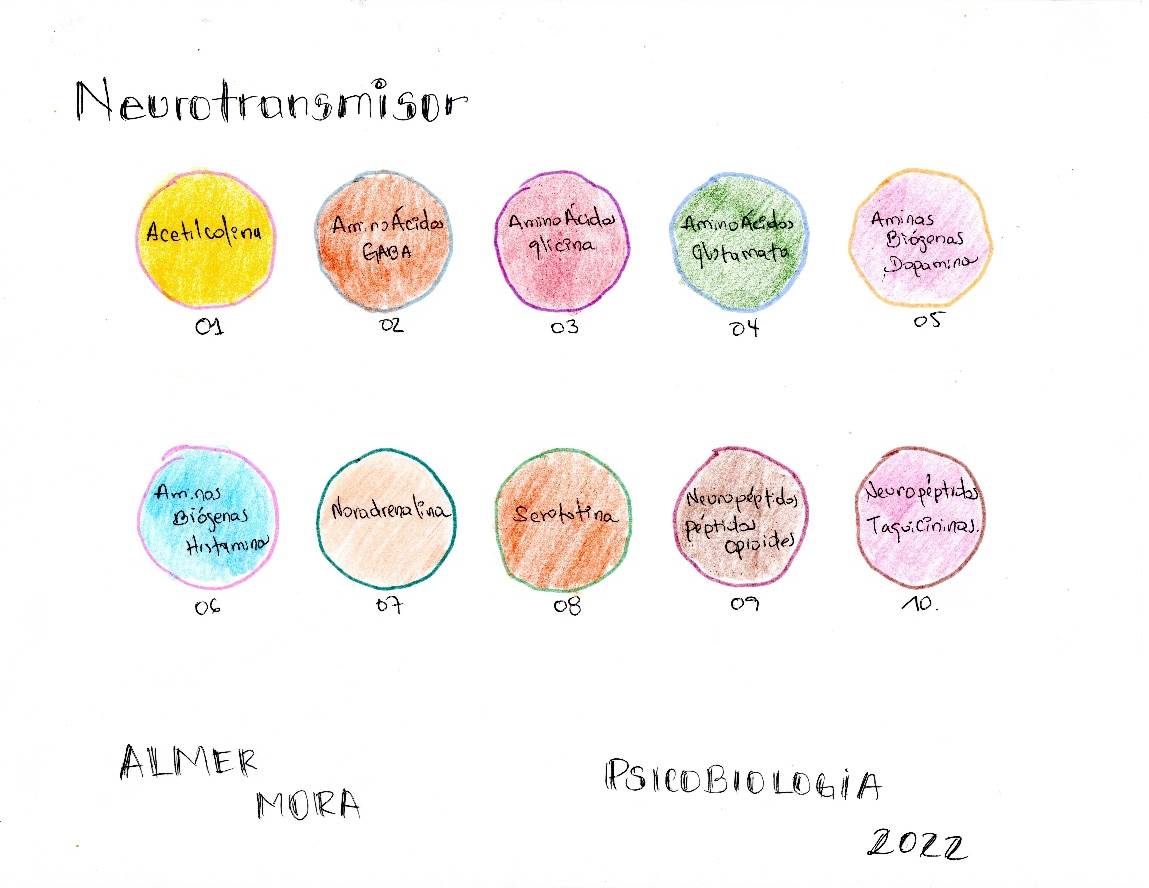 Neurotransmisor
Acetilcolina
01
AminoÁcidos
GABA
02
AminoÁcidos
glicina
03
AminoÁcidos
glutamato
04
Aminas
Biógenas
Dopamina
05
Aminas
Biógenas
Histamina
06
Noradrenalina
07
Serototina
08
Neuropéptidos
péptidos
opioides
09
Neuropéptidos
Taquicininas.
10.
ALMER
MORA
PSICOBIOLOGiA
2022